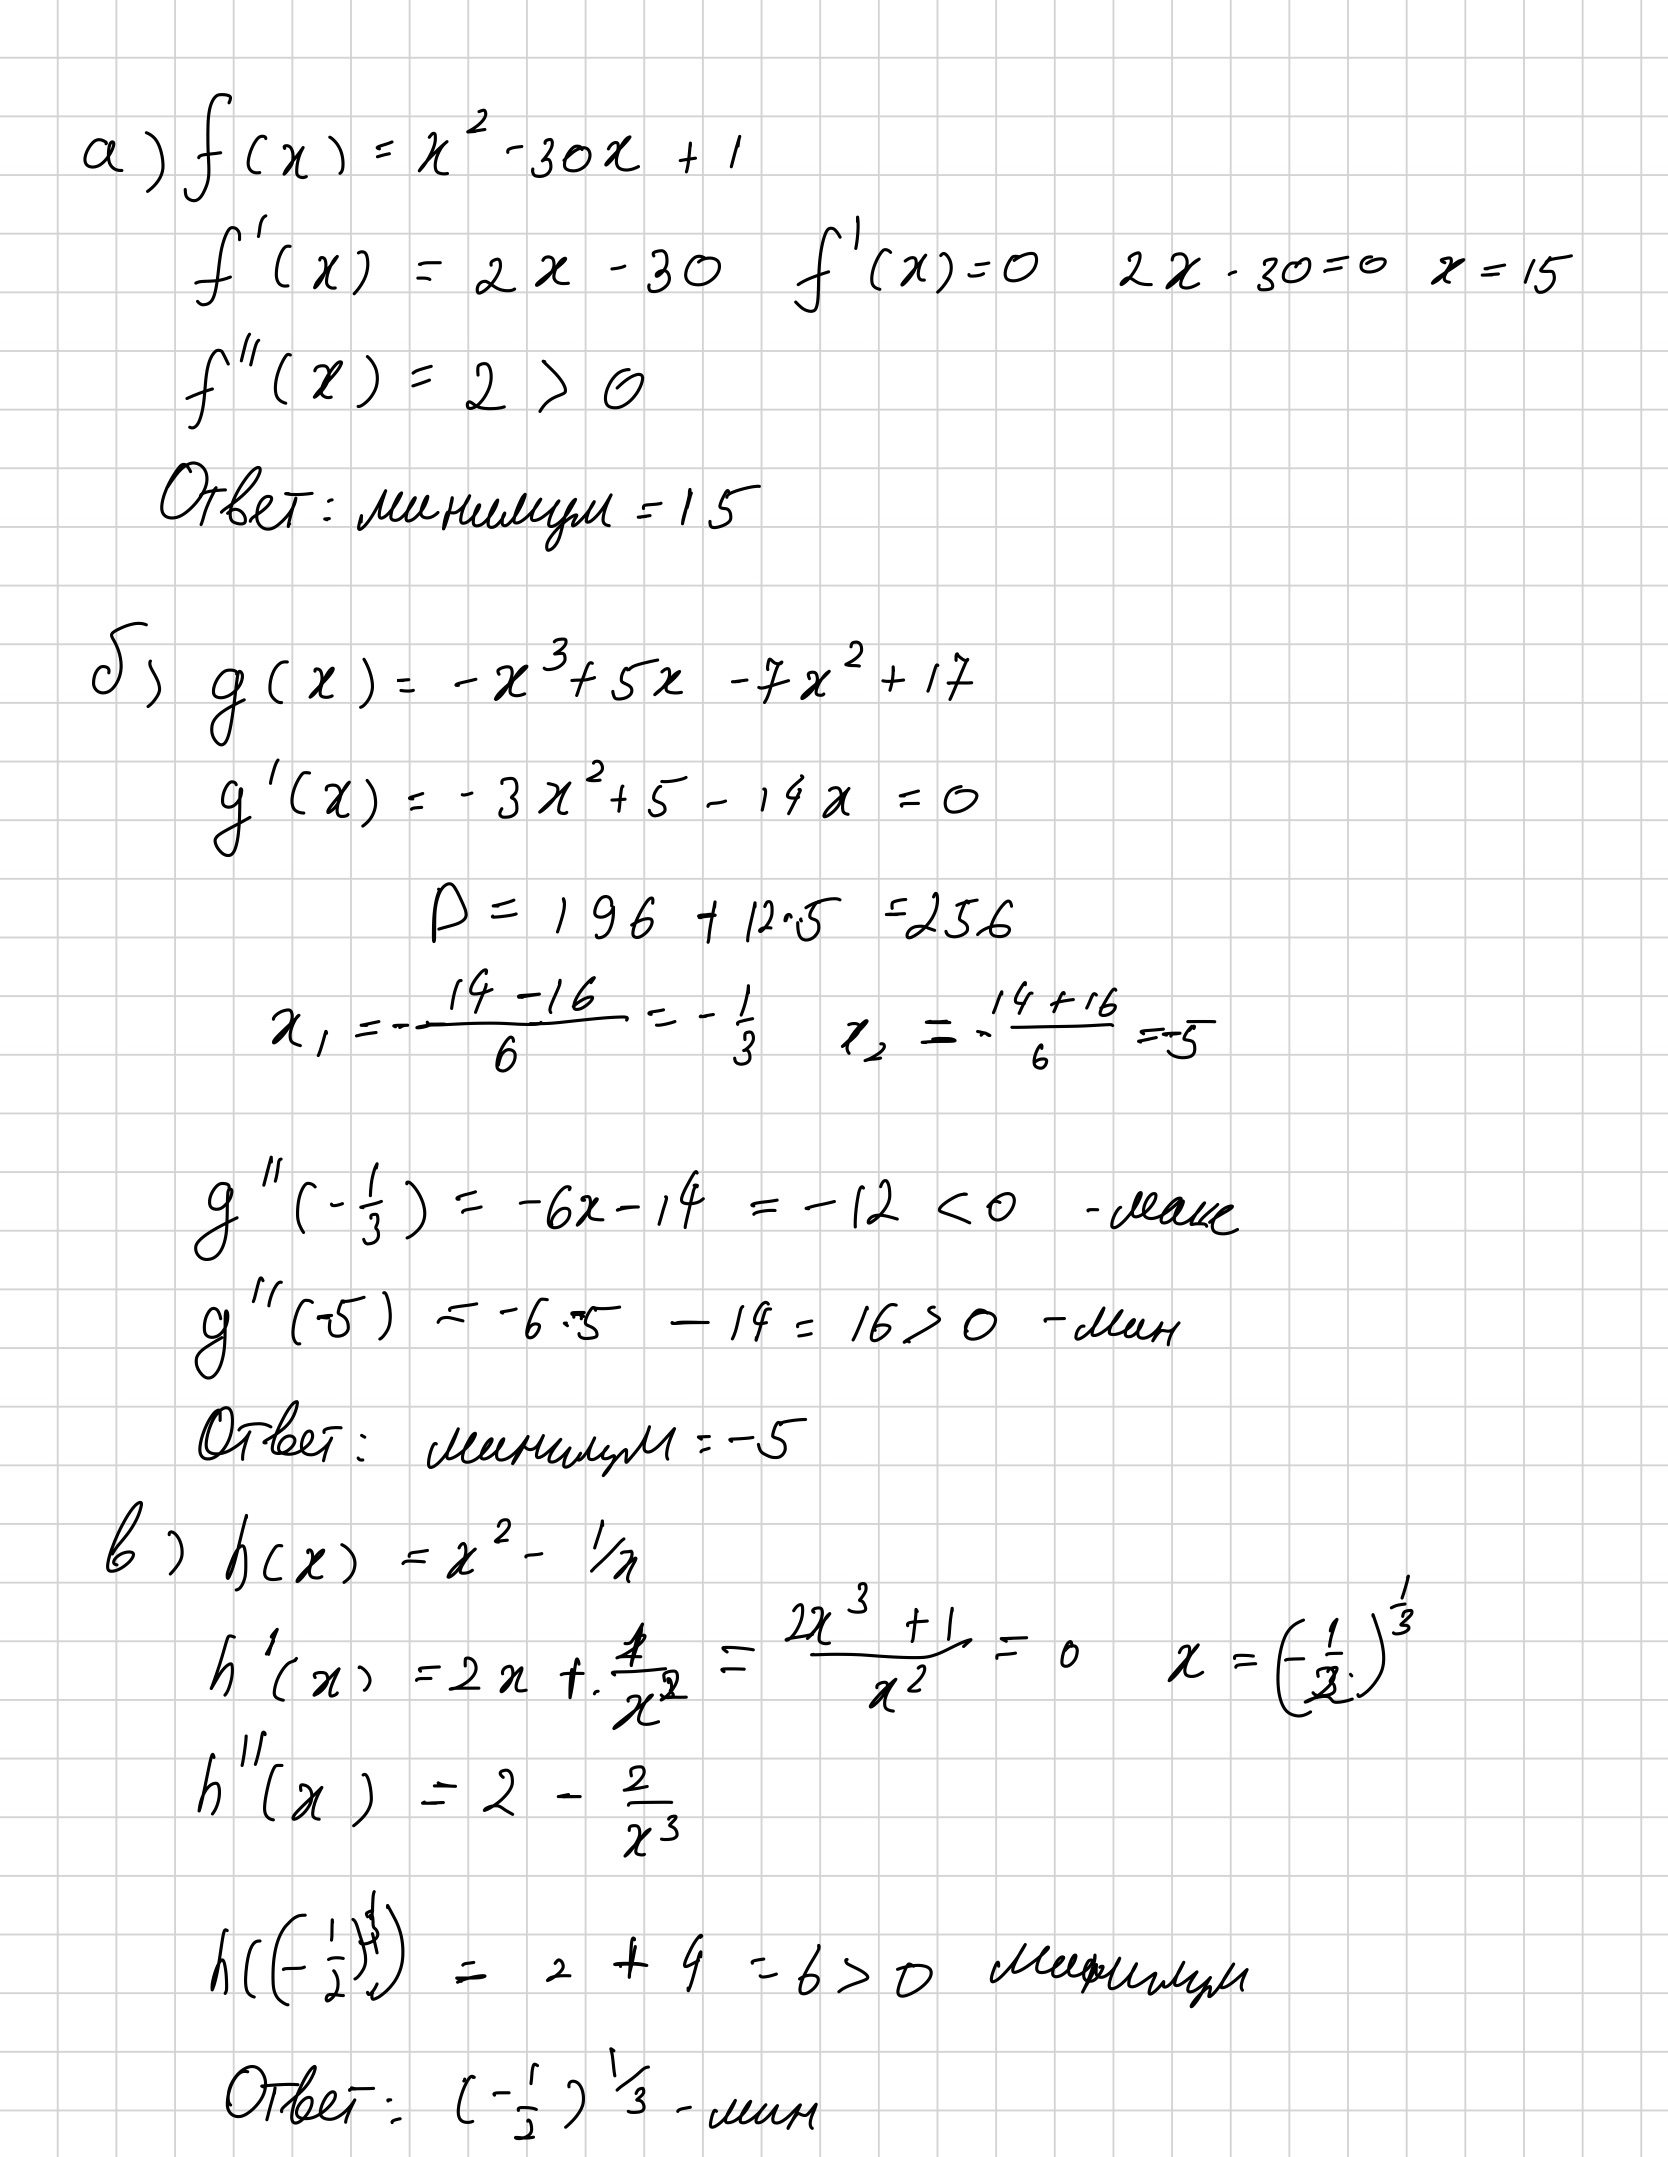 а) f(x) = x² - 30x + 1
f'(x) = 2x - 30 f'(x) = 0 2x - 30 = 0 x = 15
f''(x) = 2 > 0
Ответ: минимум = 15
б) g(x) = -x³ + 5x - 7x² + 17
g'(x) = -3x² + 5 - 14x = 0
D = 196 + 12·5 = 256
x₁ = -(14 - 16)/6 = -1/3 x₂ = -(14 + 16)/6 = -5
g''(-1/3) = -6x - 14 = -12 < 0 - макс
g''(-5) = -6·-5 - 14 = 16 > 0 - мин
Ответ: минимум = -5
в) h(x) = x² - 1/x
h'(x) = 2x + 1/x² = (2x³ + 1)/x² = 0 x = (-1/2)^(1/3)
h''(x) = 2 - 2/x³
h((-1/2)^(1/3)) = 2 + 4 = 6 > 0 минимум
Ответ: (-1/2)^(1/3) - мин